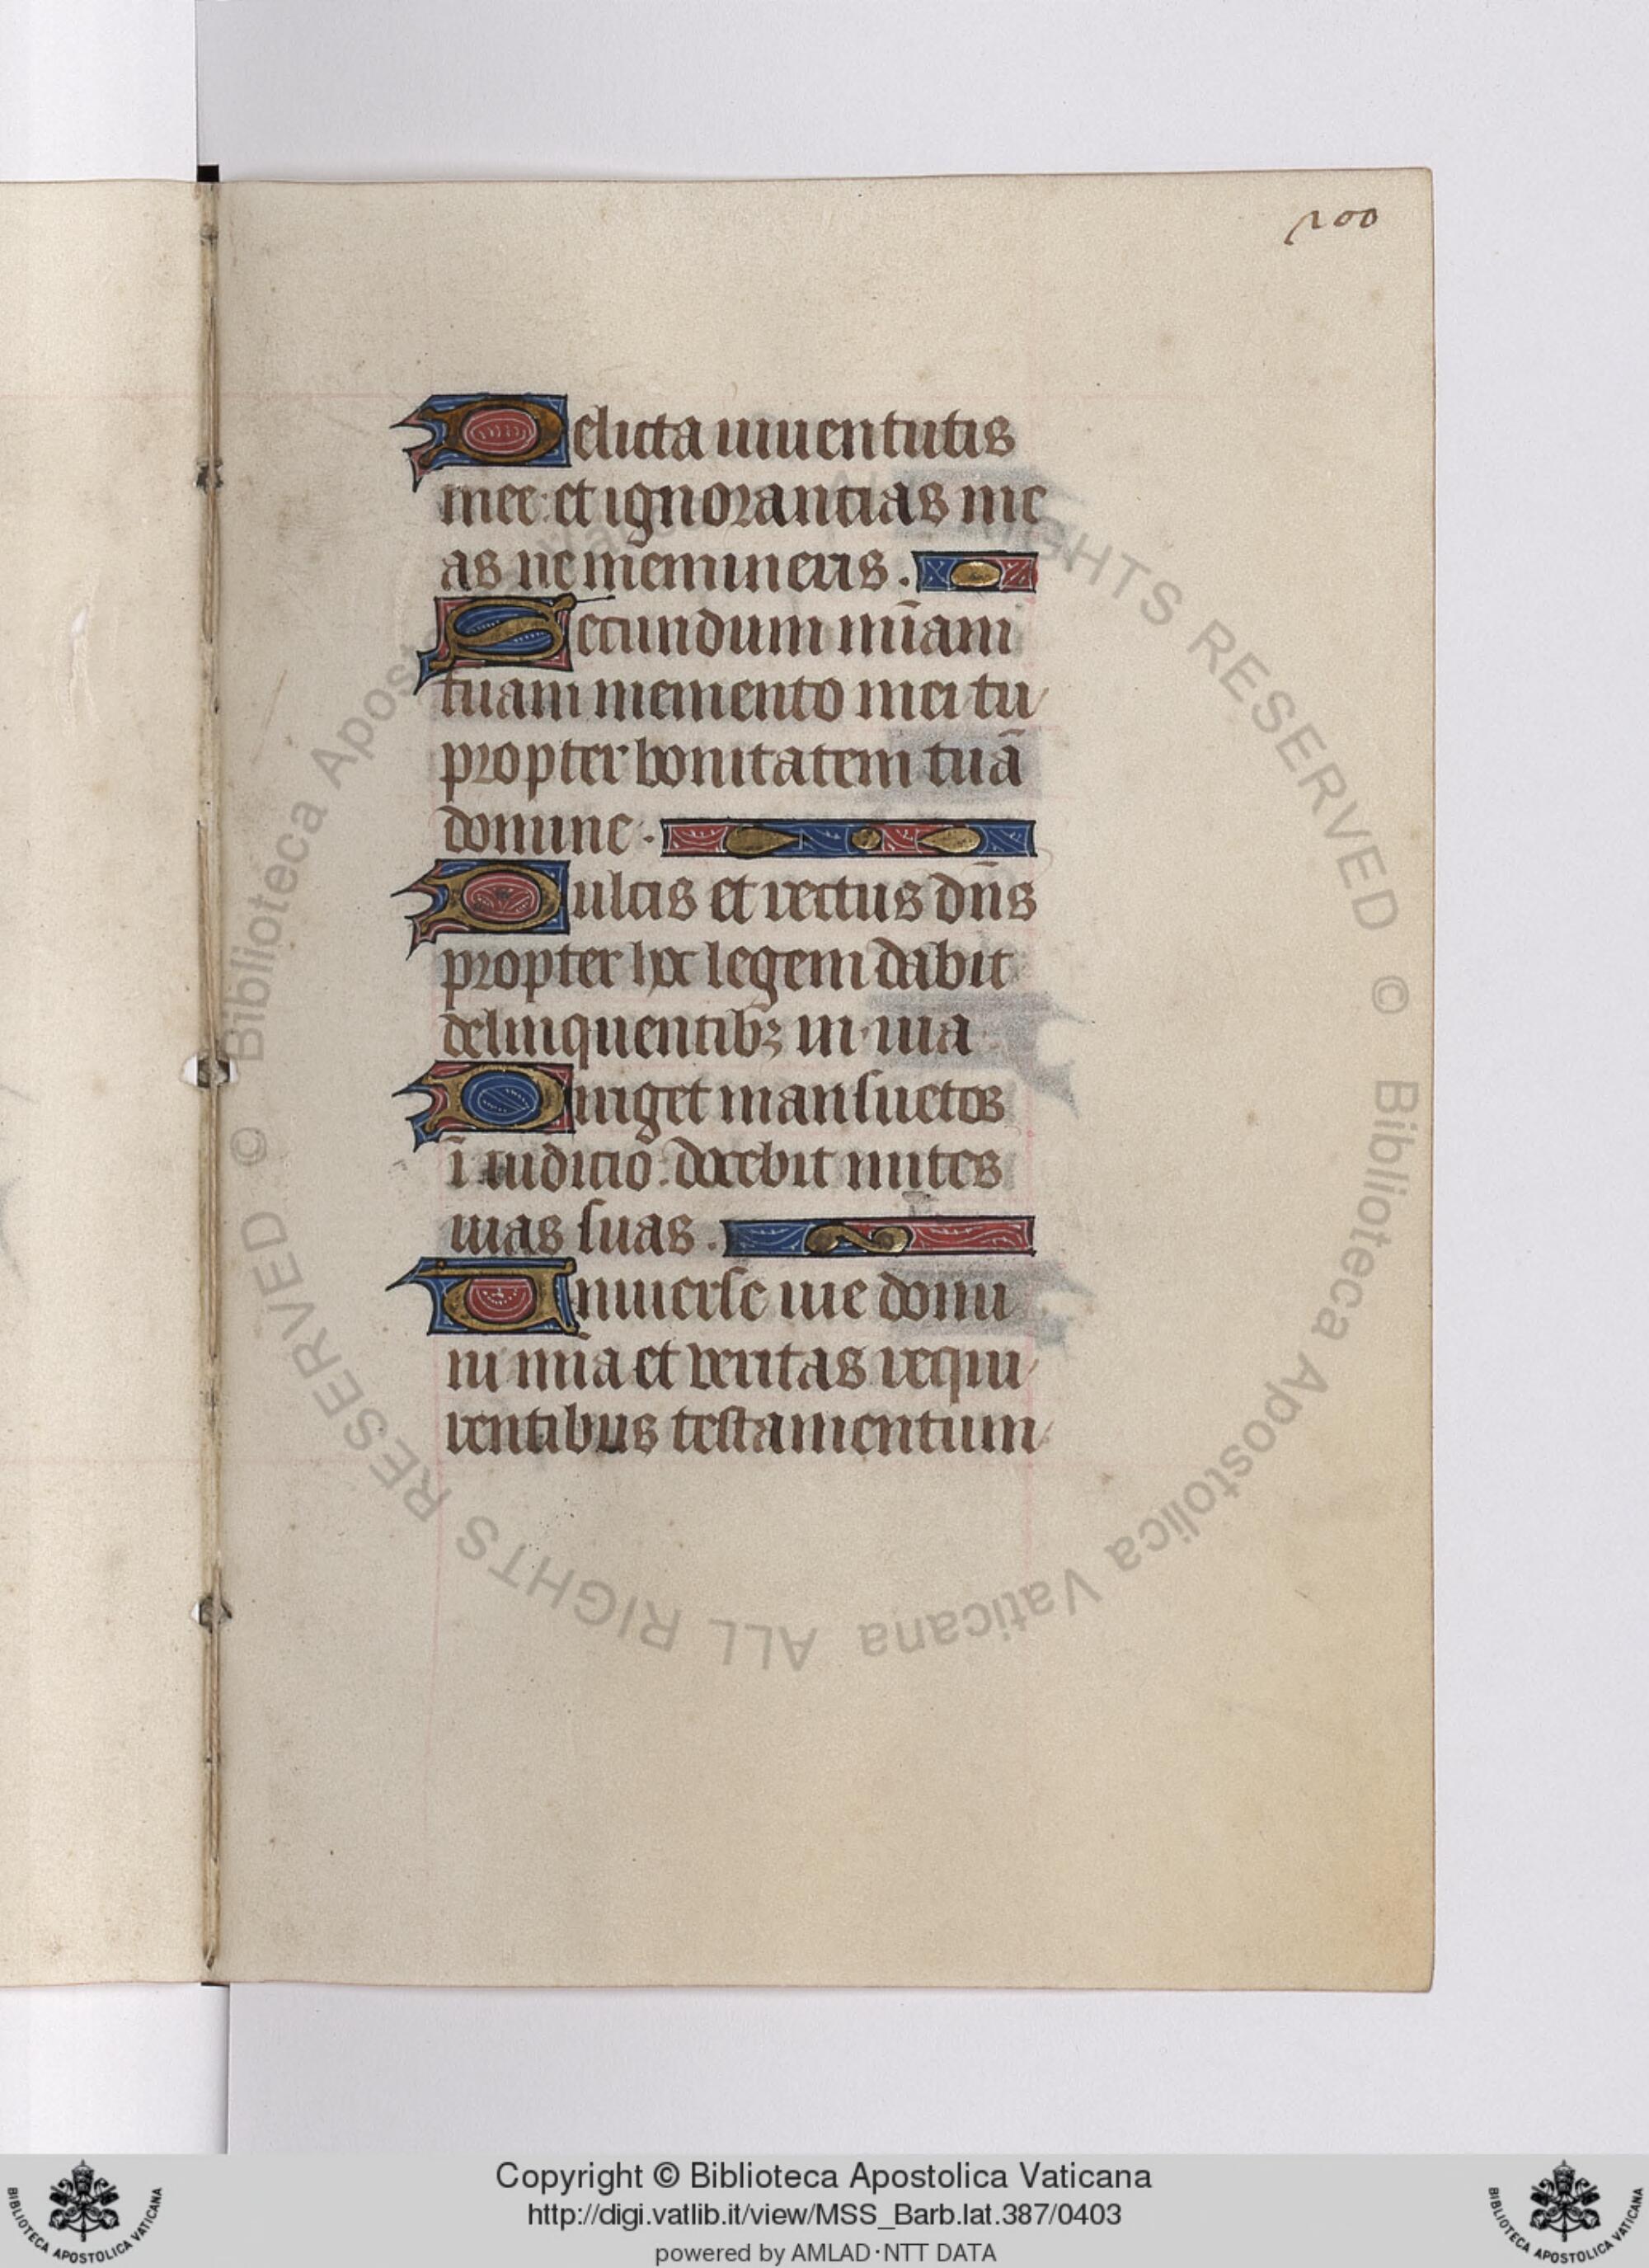 200
Delicta iuuentutis
mee: et ignorancias me
as ne memineris.
Secundum mīam
tuam memento mei tu
propter bonitatem tuā
domine.
Dulcis et rectus dn̄s
propter hoc legem dabit
delinquentibꝫ in uia
Diriget mansuetos
ī iudicio: docebit mites
uias suas.
Uniuerse uie domi
ni mīa et veritas requi
rentibus testamentum
© Biblioteca Apostolica Vaticana ALL RIGHTS RESERVED © Biblioteca Apostolica Vaticana ALL RIGHTS RESERVED
Copyright © Biblioteca Apostolica Vaticana
http://digi.vatlib.it/view/MSS_Barb.lat.387/0403
powered by AMLAD·NTT DATA
BIBLIOTECA APOSTOLICA VATICANA
BIBLIOTECA APOSTOLICA VATICANA